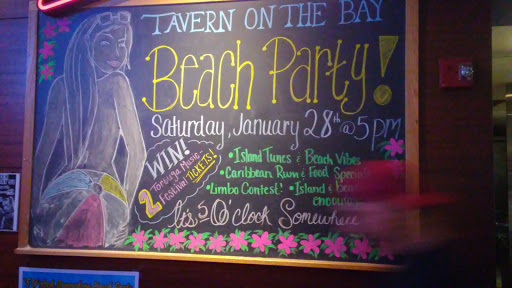 TAVERN ON THE BAY
Beach Party!
Saturday, January 28th @ 5pm
WIN!
2 Tortuga Music
Festival TICKETS!
•Island Tunes & Beach Vibes
•Caribbean Rum & Food
•Limbo Contest! •Island &
It's 5 O'clock Somewhere